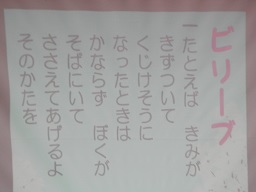 ビリーブ
一たとえば きみが
きずついて
くじけそうに
なったときは
かならず ぼくが
そばにいて
ささえてあげるよ
そのかたを